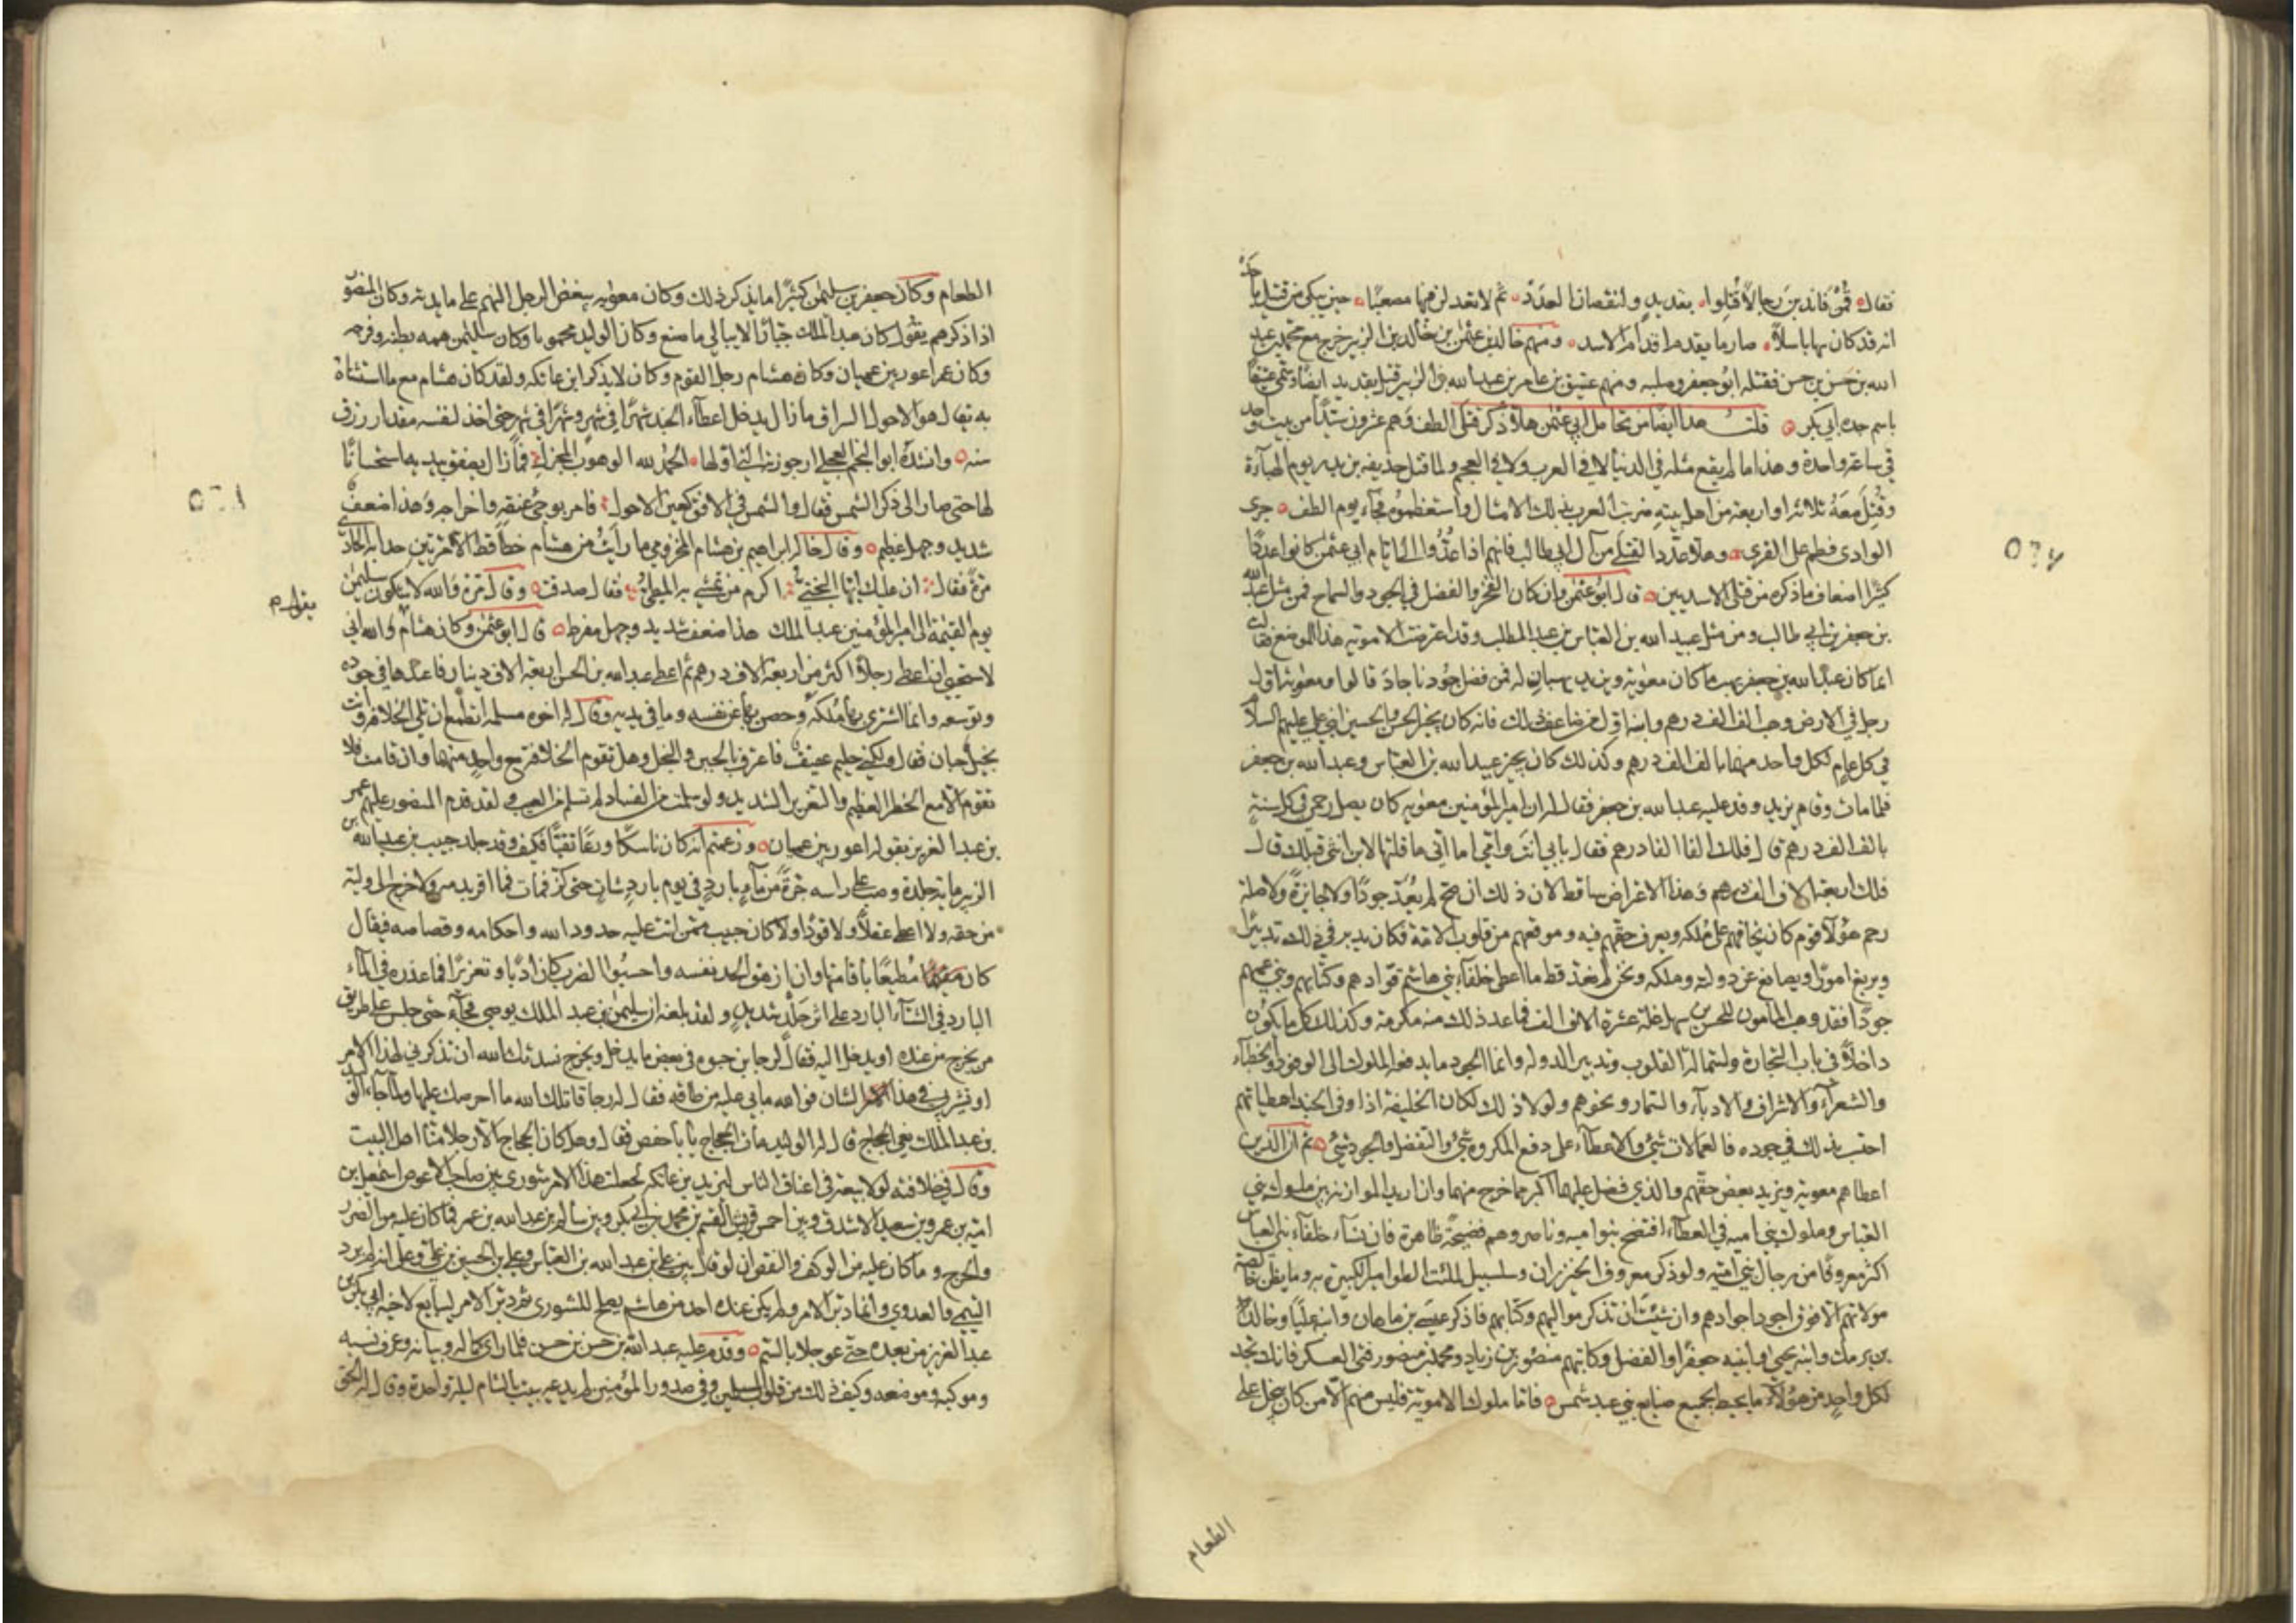 فقال قمن فاندبن رجالا قتلوا بقديد ولنقصان العدد ثم لا تعدلن فيها مصعبا حين يبكي من قتيل باحد
انه قد كان بها باسلا صارما يقدم اقدام الاسد ومنهم خالد بن عثمن بن خالد بن الزبير خرج مع محمد بن عبد
الله بن حسن بن حسن فقتله ابو جعفر وصلبه ومنهم عتيق بن عامر بن عبد الله بن الزبير قتل بقديد ايضا وسمي عتيقا
باسم جده ابي بكر قلت هذا ايضا من تحامل ابي عثمن هلا ذكر قتلى الطف وهم عشرون سيدا من بيت واحد
في ساعة واحدة وهذا ما لم يقع مثله في الدنيا لا في العرب ولا في العجم ولما قتل حذيفة بن بدر يوم الهباءة
وقتل معه ثلاثة او اربعة من اهل بيته ضربت العرب بذلك الامثال واستعظموه فجاء يوم الطف جرى
الوادي فطم على القرى وهلا عدد القتلى من آل ابي طالب فانهم اذا عدوا الى ايام ابي عثمن كانوا عددا
كثيرا اضعاف ما ذكره من قتلى الاسديين قال ابو عثمن وان كان الفخر والفضل في الجود والسماح فمن مثل عبد الله
بن جعفر بن ابي طالب ومن مثل عبيد الله بن العباس بن عبد المطلب وقد اعترضت الاموية هذا الموضع فقالت
انما كان عبد الله بن جعفر يهب ما كان معوية ويزيد يهبان له فمن فضل جودنا جاد قالوا ومعوية اول
رجل في الارض وهب الف الف درهم وابنه اول من ضاعف ذلك فانه كان يجيز الحسن والحسين ابني علي عليهم السلام
في كل عام لكل واحد منهما بالف الف درهم وكذلك كان يجيز عبيد الله بن العباس وعبد الله بن جعفر
فلما مات وقام يزيد وفد عليه عبد الله بن جعفر فقال له ان امير المؤمنين معوية كان يصل رحمي في كل سنة
بالف الف درهم قال فلك الفا الف درهم فقال بابي انت وامي اما اني ما قلتها لابن انثى قبلك قال
فلك اربعة الاف الف درهم وهذا الاعتراض ساقط لان ذلك ان صح لم يعد جودا ولا جائزة ولا صلة
رحم هؤلاء قوم كان يخافهم على ملكه ويعرف حقهم فيه وموقعهم من قلوب الامة فكان يدبر في ذلك تدبيرا
ويريغ امورا ويصانع عن دولته وملكه ونحن لم نعد قط ما اعطى خلفاء بني هاشم قوادهم وكتابهم وبني عمهم
جودا فقد وهب المامون للحسن بن سهل غلة عشرة الاف الف فما عد ذلك منه مكرمة وكذلك كل ما يكون
داخلا في باب التجارة واستمالة القلوب وتدبير الدولة وانما الجود ما يدفعه الملوك الى الوفود والخطباء
والشعراء والاشراف والادباء والسمار ونحوهم ولولا ذلك لكان الخليفة اذا وفى الجند اعطياتهم
احتسب بذلك في جوده فالعمالات شيء والاعطاء على دفع المكروه شيء والتفضل والجود شيء ثم ان الذين
اعطاهم معوية ويزيد بعض حقهم والذي فضل عليهما اكثر مما خرج منهما وان اريد الموازنة بين ملوك بني
العباس وملوك بني امية في العطاء افتضح بنو امية وناصروهم فضيحة ظاهرة فان نساء خلفاء بني العباس
اكثر معروفا من رجال بني امية ولو ذكر معروف الخيزران وسلسبيل لملئت الطوامير الكثيرة به وما يظن خالصة
مولاتهم الا فوق اجود اجوادهم وان شئت ان تذكر مواليهم وكتابهم فاذكر عيسى بن ماهان وابنه عليا وخالد
بن برمك وابنه يحيى وابنيه جعفرا والفضل وكاتبهم منصور بن زياد ومحمد بن منصور فتى العسكر فانك تجد
لكل واحد من هؤلاء ما يحيط بجميع صنايع بني عبد شمس فاما ملوك الاموية فليس منهم الا من كان يبخل على
الطعام
الطعام وكان جعفر بن سليمن كثيرا ما يذكر ذلك وكان معوية يبغض الرجل النهم على مايدته وكان المنصور
اذا ذكرهم يقول كان عبد الملك جبارا لا يبالي ما صنع وكان الوليد مجنونا وكان سليمن همه بطنه وفرجه
وكان عمر اعور بين عميان وكان هشام رجل القوم وكان لا يذكر ابن عاتكة ولقد كان هشام مع ما استثناه
به يقال هو الاحول السراق ما زال يدخل اعطاء الجند شهرا في شهر وشهرا في شهر حتى اخذ لنفسه مقدار رزق
سنة وانشده ابو النجم العجلي ارجوزته التي اولها الحمد لله الوهوب المجزل فما زال يصفق بيديه استحسانا
لها حتى صار الى ذكر الشمس فقال والشمس في الافق كعين الاحول فامر بوجئ عنقه واخراجه وهذا ضعف
شديد وجهل عظيم وقال خاله ابراهيم بن هشام المخزومي ما رايت من هشام خطأ قط الا مرتين حدا به الحادي
مرة فقال ان عليك ايها البختي اكرم من تمشي به المطي فقال صدقت وقال مرة والله لاشكون سليمن
يوم القيمة الى امير المؤمنين عبد الملك هذا ضعف شديد وجهل مفرط قال ابو عثمن وكان هشام يقول والله اني
لاستحيي ان اعطي رجلا اكثر من اربعة الاف درهم ثم اعطى عبد الله بن الحسن اربعة الاف دينار فاعتدها في جوده
وتوسعه وانما اشترى بها ملكه وحصن بها عن نفسه وما في يديه وقال له اخوه مسلمة اتطمع ان تلي الخلافة وانت
بخيل جبان فقال ولكني حليم عفيف فاعترف بالجبن والبخل وهل تقوم الخلافة مع واحد منهما وان قامت فلا
تقوم الا مع الخطر العظيم والتغرير الشديد ولو سلمت من الفساد لم تسلم من العيب ولقد قدم المنصور عليهم عمر
بن عبد العزيز بقوله اعور بين عميان وزعمتم انه كان ناسكا ورعا تقيا فكيف وقد جلد خبيب بن عبد الله بن
الزبير ماية جلدة وصب على راسه جرة من ماء بارد في يوم بارد شات حتى كز فمات فما اقر بدمه ولا خرج الى وليه
من حقه ولا اعطى عقلا ولا قودا ولا كان خبيب ممن اتت عليه حدود الله واحكامه وقصاصه فيقال
كان مقيما مطيعا باقامتها وانه ازهق الحد نفسه واحسبوا الضرب كان ادبا وتعزيرا فما عذره في الماء
البارد في الشتاء البارد على اثر جلد شديد ولقد بلغه ان سليمن بن عبد الملك يوصي فجاء حتى جلس على طريق
من يخرج من عنده او يدخل اليه فقال لرجا بن حيوة في بعض ما يدخل ويخرج نشدتك الله ان تذكرني لهذا الامر
او تشير بي في هذا الشان فوالله ما لي عليه من طاقة فقال له رجا قاتلك الله ما احرصك عليها ولما جاء الوليد
بن عبد الملك نعي الحجاج قال له الوليد مات الحجاج يا با حفص فقال وهل كان الحجاج الا رجلا منا اهل البيت
وقال في خلافته لولا بيعة في اعناق الناس ليزيد بن عاتكة لجعلت هذا الامر شورى بين صاحب الاعوص اسمعيل بن
امية بن عمرو بن سعيد الاشدق وبين احمس قريش القسم بن محمد بن ابي بكر وبين سالم بن عبد الله بن عمر فما كان عليه من الضرر
والحرج وما كان عليه من الوكف والنقص ان لو قال بين علي بن عبد الله بن العباس وعلي بن الحسين بن علي وعلى انه لم يرد
التيمي والعدوي وانما دبر الامر ولم يكن عنده احد من هاشم يصلح للشورى ثم دبر الامر ليبايع لاخيه ابي بكر بن
عبد العزيز من بعده حتى عوجل بالسم وقدم عليه عبد الله بن حسن بن حسن فلما راى كماله وبيانه وعرف نسبه
وموكبه وموضعه وكيف ذلك من قلوب المسلمين وفي صدور المؤمنين لم يدعه يبيت بالشام ليلة واحدة وقال له الحق